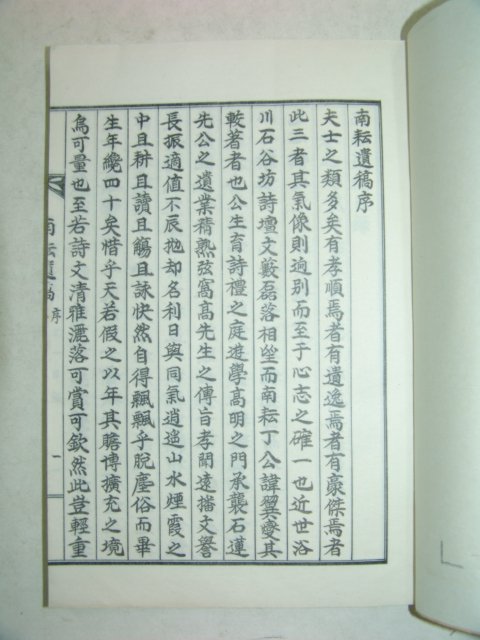 南耘遺稿序
夫士之類多矣有孝順焉者有遺逸焉者有豪傑焉者
此三者其氣像則逈別而至于心志之確一也近世浴
川石谷坊詩壇文藪磊落相望而南耘丁公諱翼燮其
較著者也公生育詩禮之庭遊學高明之門承襲石蓮
先公之遺業稱熟弦窩高先生之傳旨孝聞遠播文譽
長振適值不辰抛却名利日與同氣逍遙山水煙霞之
中且耕且讀且觴且詠快然自得飄飄乎脫塵俗而畢
生年纔四十矣惜乎天若假之以年其贍博擴充之境
烏可量也至若詩文清雅灑落可賞可欽然此豈輕重
南耘遺稿 序 一